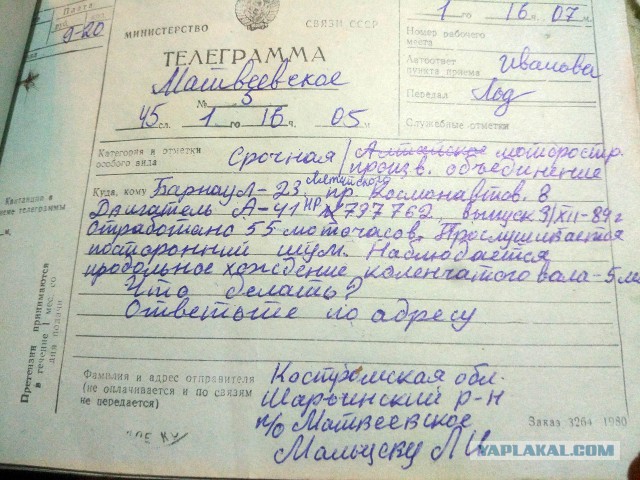 Плата
руб. коп.
9-20
МИНИСТЕРСТВО
СВЯЗИ СССР
ТЕЛЕГРАММА
Матвеевское
№ 5
45 сл. 1 го 16 ч. 05 м
1 го 16 ч. 07 м
Номер рабочего места
Автоответ пункта приема
Иванова
Передал
Служебные отметки
Категория и отметки особого вида
Срочная
Алтайское моторостр.
произв. объединение
Куда, кому Барнаул-23 пр. Космонавтов 8
Двигатель А-41 НР №797762, выпуск 3/XII-89 г
отработано 55 моточасов. Прослушивается
посторонний шум. Наблюдается
продольное хождение коленчатого вала-5
Что делать?
Ответьте по адресу
Квитанция в
ме телеграммы
м.
Претензии принимаются
в течение 1 мес. со
дня подачи
Фамилия и адрес отправителя
(не оплачивается и по связям
не передается)
Костромская обл.
Шарьинский р-н
п/о Матвеевское
Заказ 3264 1980
YAPLAKAL.COM